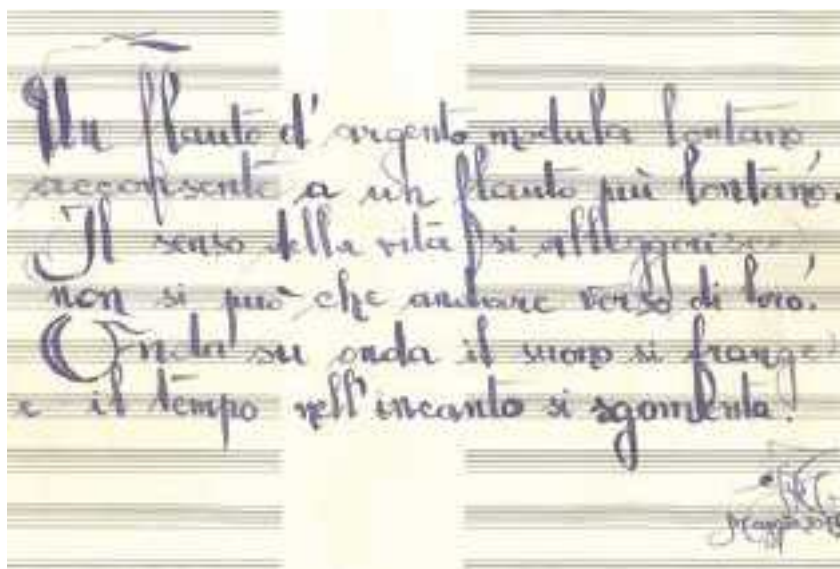 Un flauto d'argento modula lontano
acconsente a un flauto più lontano.
Il senso della vita si alleggerisce
non si può che andare verso di loro.
Onda su onda il suono si frange
e il tempo nell'incanto si sgomenta.
Maggio